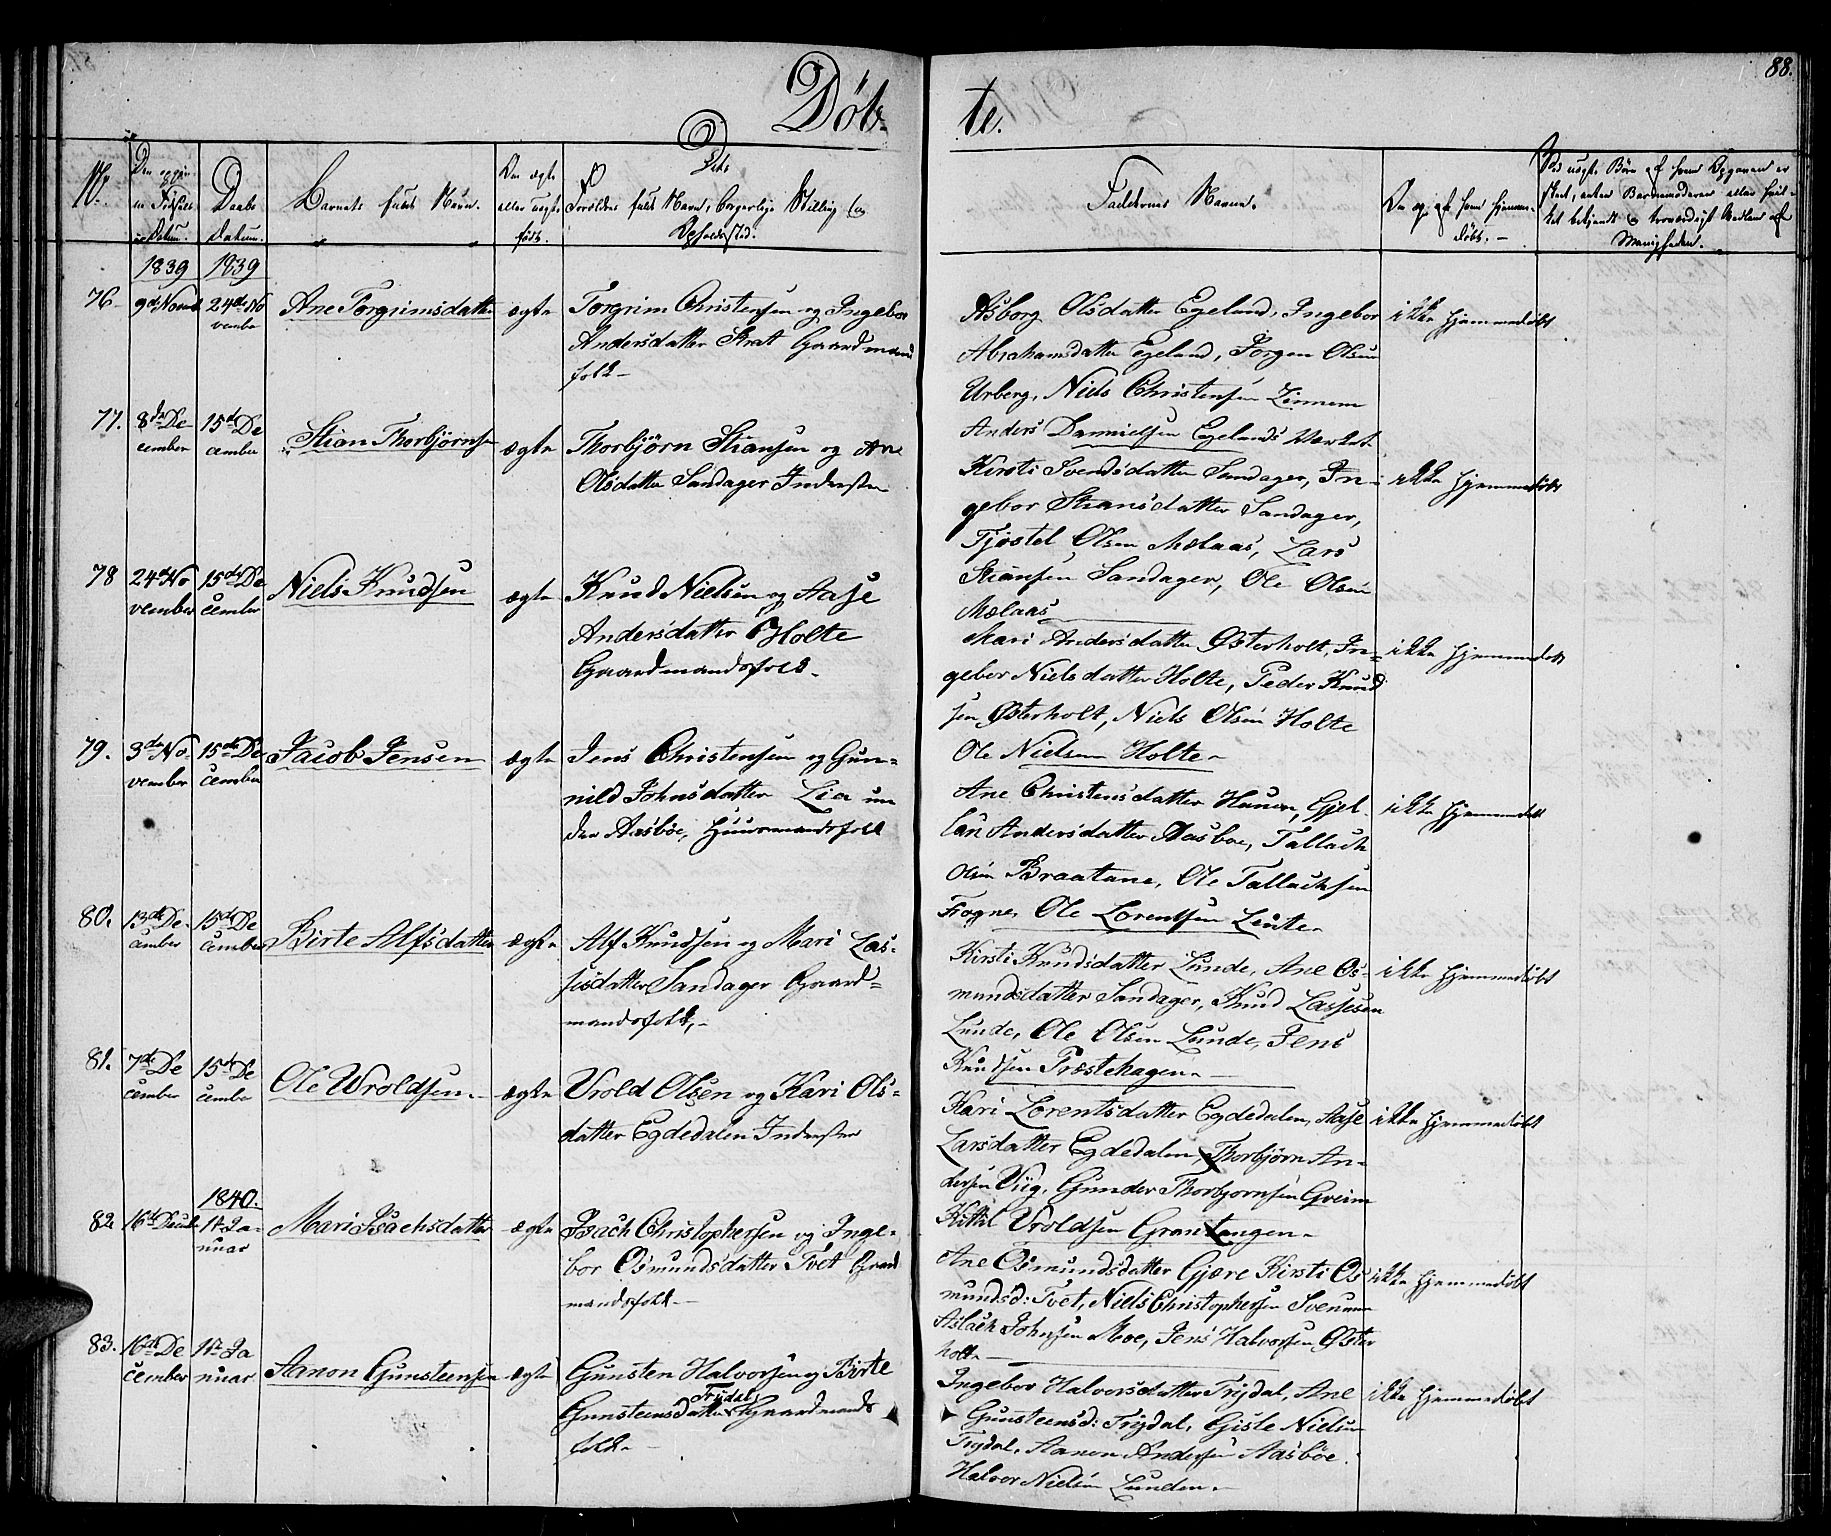 88.
Døb-
te.
No.
Daabs
Datum.
Barnets fulde Navn.
Den ægte
eller uægte
født.
Dets
Forældres fulde Navn, borgerlige Stilling og
Opholdssted.
Faddernes Navne.
Døbt. -
Menigheden.
1839 1839
76. 9de Novemb 24de No
vember
Ane Torgrimsdatter
ægte
Torgrim Christensen og Ingebor
Andersdatter Strat Gaardmand
folk -
Asborg Olsdatter Egeland, Ingebor
Abrahamsdatter Egeland, Jørgen Olsen
Urberg, Niels Christensen Linnem
Anders Danielsen Egelands Værket.
ikke hjemmedøbt
77. 8de De
cember
15de De
cember
Stian Thorbjørnsen
ægte
Thorbjørn Stiansen og Ane
Olsdatter Sandager Inderster
Kirsti Svendsdatter Sandager, In-
gebor Stiansdatter Sandager,
Tjøstel Olsen Mælaas, Lars
Stiansen Sandager, Ole Olsen
Mælaas
ikke hjemmedøbt
78 24de No
vember
15de De
cember
Niels Knudsen
ægte
Knud Nielsen og Aase
Andersdatter Holte
Gaardmandsfolk.
Mari Andersdatter Østerholt, In=
gebor Nielsdatter Holte, Peder Knud
sen Østerholt, Niels Olsen Holte
Ole Nielsen Holte -
ikke hjemmedøbt
79. 3de No-
vember
15de De
cember
Jacob Jensen
ægte
Jens Christensen og Gun-
nild Johnsdatter Lia un
der Aasbøe, Huusmandsfolk
Ane Christensdatter Hauen, Gjel-
lan Andersdatter Aasboe, Tallach
Olsen Braatane, Ole Tallachsen
Frogne, Ole Lorentsen Lunte -
ikke hjemmedøbt
80. 13de De-
cember
15de De
cember
Birte Alfsdatter
ægte
Alf Knudsen og Mari Las-
sesdatter Sandager Gaard=
mandsfolk, -
Kirsti Knudsdatter Lunde, Ane Os-
mundsdatter Sandager, Knud Lassesen
Lunde, Ole Olsen Lunde, Jens
Knudsen Præstehagen -
ikke hjemmedøbt
81. 7de De
cember
15de De
cember
Ole Wroldsen -
ægte
Vrold Olsen og Kari Ols-
datter Egdedalen Inderster
Kari Lorentsdatter Egdedalen, Aase
Larsdatter Egdedalen, Thorbjørn An-
dersen Viig, Gunder Thorbjornsen Greim
Kittil Vroldsen Grantangen -
ikke hjemmedøbt
1840.
82. 16de Decemb 1te Ja-
nuar
Mari Isachsdatter
ægte
Isach Christophersen og Inge-
bor Osmundsdatter Tvet Gaard
mandsfolk -
Ane Osmundsdatter Gjære Kirsti Os
mundsd: Tvet, Niels Christophersen Svenum
Aslach Johnsen Moe, Jens Halvorsen Øster
holt -
ikke hjemmedøbt
83. 16de De
cember
1te Ja
nuar
Aanon Gunsteensen
ægte
Gunsten Halvorsen og Birte
Gunsteensdatter Trydal Gaardmands
folk -
Ingebor Halvorsdatter Trydal, Ane
Gunsteensd: Trydal, Gisle Nielsen
Trydal, Aanon Andersen Aasbøe.
Halvor Nielsen Lunden. -
ikke hjemmedøbt